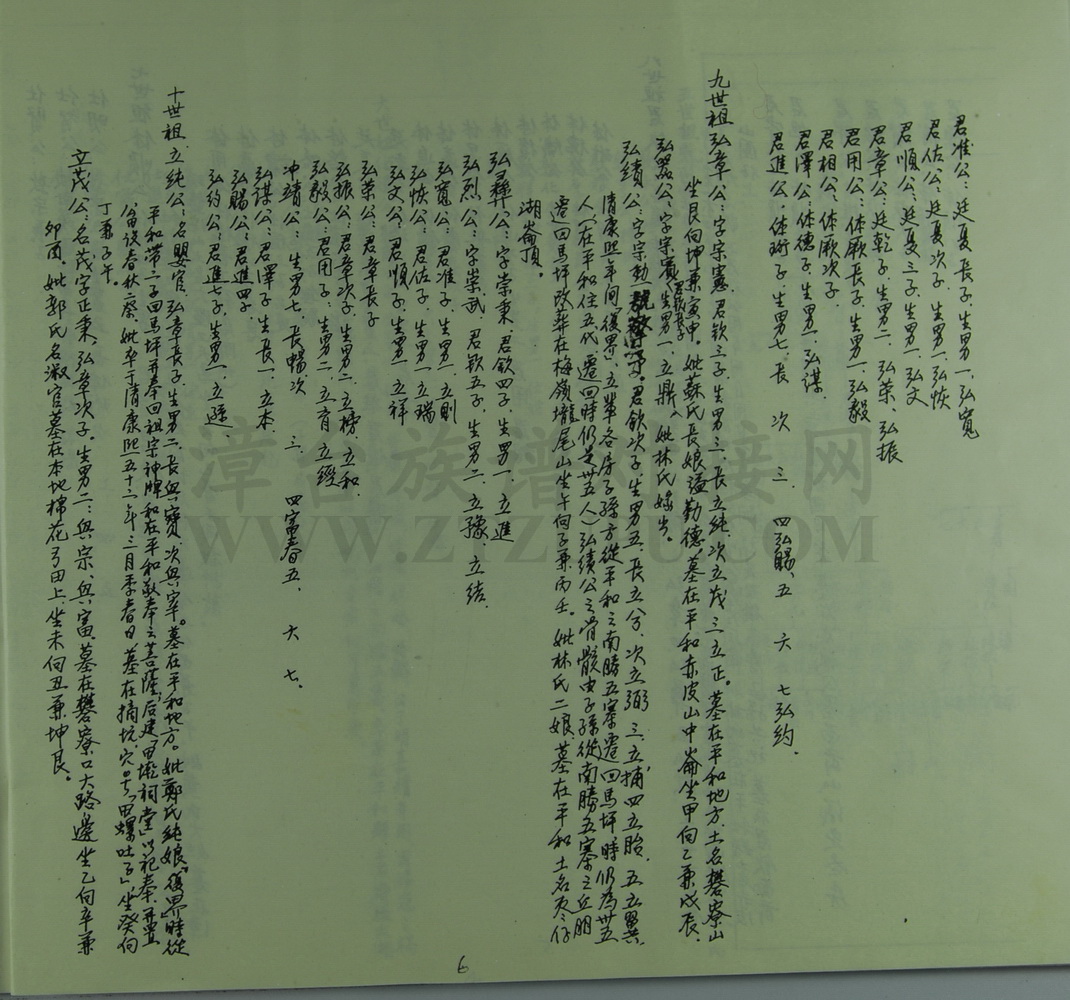 君准公：廷夏長子，生男一，弘寬
君佐公：廷夏次子，生男一，弘恢
君順公：廷夏三子，生男一，弘文
君章公：廷乾子，生男二，弘荣、弘振
君用公：体厥長子，生男一，弘毅
君相公：体厥次子
君澤公：体德子，生男一，弘謀
君進公：体珩子，生男七，長　次　三　四弘賜、五　六　七弘約。
九世祖弘章公：字宗憲，君欽三子，生男三，長立純，次立茂，三立正。墓在平和地方，土名樊寮山
坐艮向坤兼寅申。妣蘇氏長娘謚勤德，墓在平和赤皮山中崙坐甲向乙兼戊辰。
弘器公：字宗賓，君欽長子，生男一，立鼎。妣林氏嫁出。
弘績公：字宗勳，君欽次子，生男五，長立分，次立弼，三立捕，四立胎，五立異，
清康熙年间「復界」，立輩各房子孫方從平和之南勝五寨遷回馬坪時仍為卅五
人（在平和住五代，遷回時仍是卅五人）弘績公之骨骸由子孫從南勝五寨之丘朋
遷回馬坪改葬在梅嶺壠尾山坐午向子兼丙壬。妣林氏二娘，墓在平和土名仔
湖崙頂。
弘彝公：字崇秉，君欽四子，生男一，立進
弘烈公：字崇武，君欽五子，生男二，立豫、立结
弘寬公：君准子，生男一，立則
弘恢公：君佐子，生男一，立瑞
弘文公：君順子，生男一，立祥
弘荣公：君章長子
弘振公：君章次子，生男二，立榜、立和
弘毅公：君用子，生男二，立育、立經
冲靖公：生男七，長暢　次　三　四富春五、六　七、
弘謀公：君澤子，生男一，立本
弘賜公：君進四子
弘約公：君進七子，生男一，立遜
十世祖立純公：名盟官，弘章長子，生男二，長與寶，次與宰。墓在平和地方。妣鄭氏純娘，「復界」時從
平和带二子回馬坪并奉回祖宗神牌和在平和敬奉之菩薩，后建「甲墘祠堂」以祀奉，并置
畓设春秋二祭，妣卒于清康熙五十六年三月季春日，墓在摘坑，穴号「田螺吐子」坐癸向
丁兼子午。
立茂公：名茂字正秉，弘章次子。生男二：與宗、與富，墓在樊寮口大路邊坐乙向辛兼
卯酉。妣郭氏名淑官墓在本地棉花弓田上，坐未向丑兼坤艮。
6
漳台族谱对接网
WWW.ZTZUPU.COM